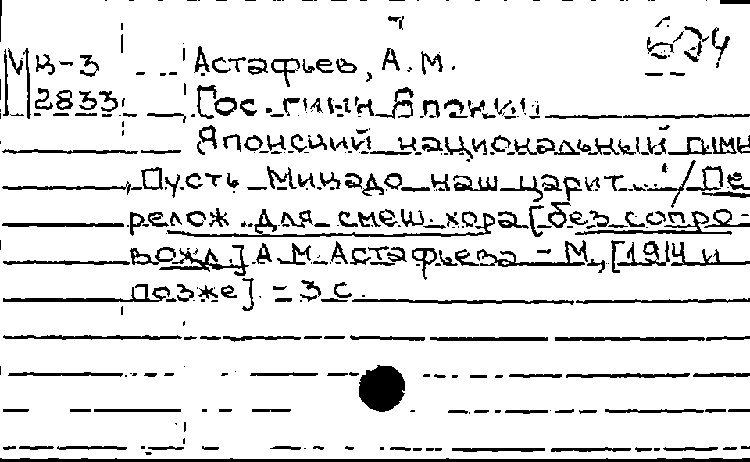 624
М В-3 Астафьев, А.М.
2833 Гос. гимн Японии
Японский национальный гимн
„Пусть Микадо наш царит..." / Пе
релож. для смеш. хора [без сопро-
вожд.] А.М. Астафьева – М., [1914 и
позже]. – 3 с.